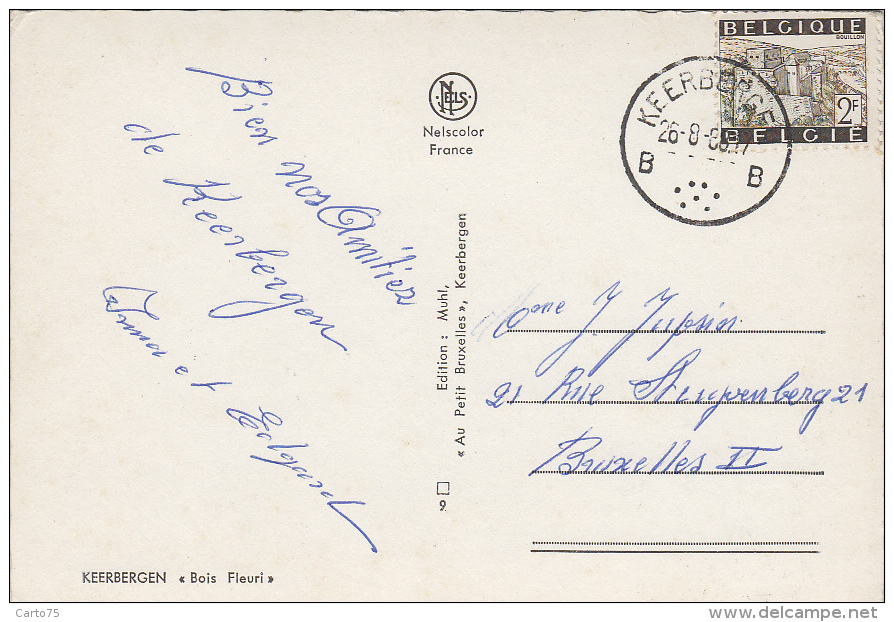 Bien nos Amitiez
de Keerbergen
Irma et Edgard
KEERBERGEN « Bois Fleuri »
NELS
Nelscolor
France
Edition : Muhl,
« Au Petit Bruxelles », Keerbergen
9
BELGIQUE
BOUILLON
2F
BELGIË
KEERBERGEN
26-8-
B B
Mme J.
21 Rue Stuyvenberg 21
Bruxelles II
Carto75
www.delcampe.net